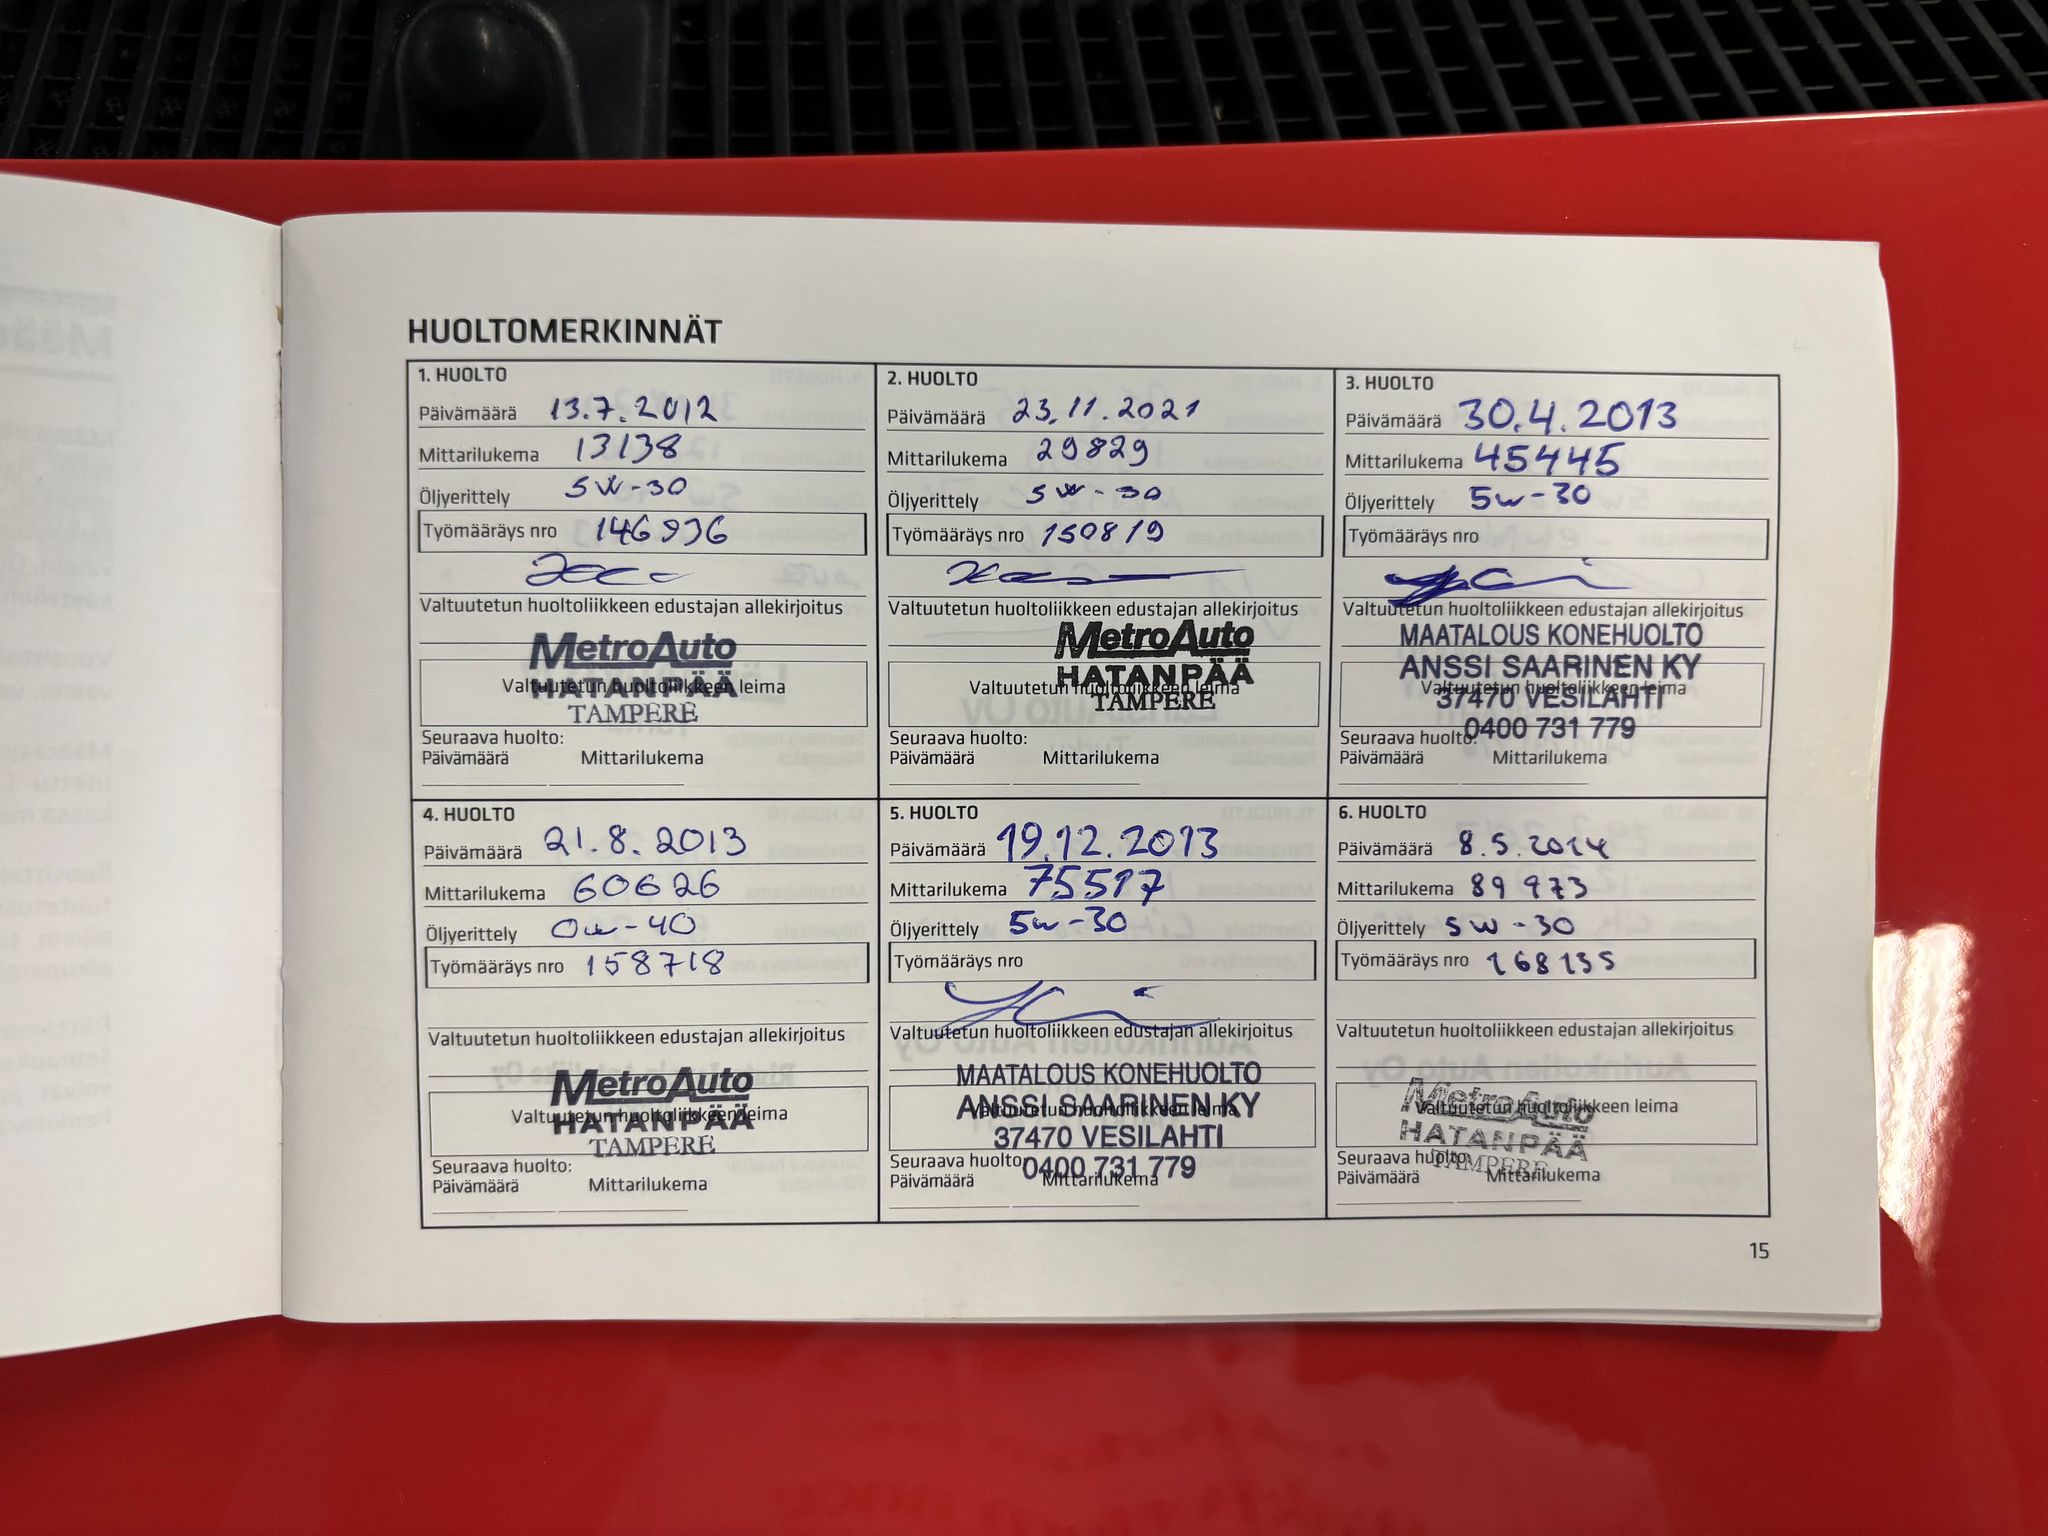 HUOLTOMERKINNÄT
1. HUOLTO
Päivämäärä 13.7.2012
Mittarilukema 13138
Öljyerittely 5W-30
Työmääräys nro 146936
Valtuutetun huoltoliikkeen edustajan allekirjoitus
MetroAuto
Valtuutetun huoltoliikkeen leima
HATANPÄÄ
TAMPERE
Seuraava huolto:
Päivämäärä Mittarilukema
2. HUOLTO
Päivämäärä 23.11.2021
Mittarilukema 29829
Öljyerittely 5W-30
Työmääräys nro 150819
Valtuutetun huoltoliikkeen edustajan allekirjoitus
MetroAuto
HATANPÄÄ
Valtuutetun huoltoliikkeen leima
TAMPERE
Seuraava huolto:
Päivämäärä Mittarilukema
3. HUOLTO
Päivämäärä 30.4.2013
Mittarilukema 45445
Öljyerittely 5w-30
Työmääräys nro
Valtuutetun huoltoliikkeen edustajan allekirjoitus
MAATALOUS KONEHUOLTO
ANSSI SAARINEN KY
Valtuutetun huoltoliikkeen leima
37470 VESILAHTI
0400 731 779
Seuraava huolto:
Päivämäärä Mittarilukema
4. HUOLTO
Päivämäärä 21.8.2013
Mittarilukema 60626
Öljyerittely 0w-40
Työmääräys nro 158718
Valtuutetun huoltoliikkeen edustajan allekirjoitus
MetroAuto
Valtuutetun huoltoliikkeen leima
HATANPÄÄ
TAMPERE
Seuraava huolto:
Päivämäärä Mittarilukema
5. HUOLTO
Päivämäärä 19.12.2013
Mittarilukema 75517
Öljyerittely 5w-30
Työmääräys nro
Valtuutetun huoltoliikkeen edustajan allekirjoitus
MAATALOUS KONEHUOLTO
ANSSI SAARINEN KY
Valtuutetun huoltoliikkeen leima
37470 VESILAHTI
Seuraava huolto:
0400 731 779
Päivämäärä Mittarilukema
6. HUOLTO
Päivämäärä 8.5.2014
Mittarilukema 89973
Öljyerittely 5W-30
Työmääräys nro 168135
Valtuutetun huoltoliikkeen edustajan allekirjoitus
MetroAuto
Valtuutetun huoltoliikkeen leima
HATANPÄÄ
Seuraava huolto:
TAMPERE
Päivämäärä Mittarilukema
15